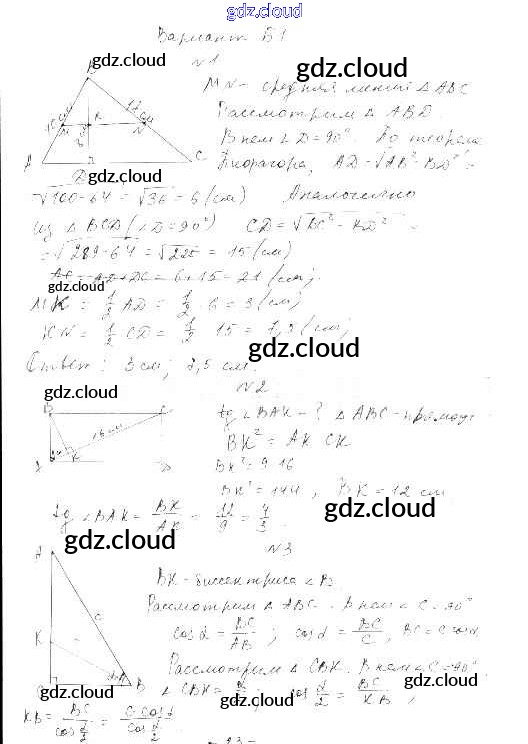 gdz.cloud
Вариант Б1
gdz.cloud
gdz.cloud
N1
MN - средняя линия Δ ABC
Рассмотрим Δ ABD.
В нем ∠D = 90°. По теореме
Пифагора, AD = √AB² - BD² =
B
10 см
17 см
M
K
N
8
A
D
C
gdz.cloud
√100-64 = √36 = 6 (см) Аналогично
из Δ BCD (∠D = 90°) CD = √BC² - BD² =
= √289-64 = √225 = 15 (см)
AC = AD + DC = 6 + 15 = 21 (см);
MK = 1/2 AD = 1/2 · 6 = 3 (см)
KN = 1/2 CD = 1/2 · 15 = 7,5 (см);
gdz.cloud
Ответ: 3 см; 7,5 см.
N2
gdz.cloud
B
C
16 см
A
K
D
tg ∠BAK - ? Δ ABC -
BK² = AK CK
gdz.cloud
BK² = 9·16
BK² = 144, BK = 12 см
tg ∠BAK = BK/AK = 12/9 = 4/3
gdz.cloud
gdz.cloud
N3
A
c
K
B
BK - биссектриса ∠B
Рассмотрим Δ ABC. В нем ∠C = 90°
cos α = BC/AB; cos α = BC/c, BC = c cos α
Рассмотрим Δ CBK. В нем ∠C = 90°
∠CBK = α/2; cos α/2 = BC/KB,
gdz.cloud
gdz.cloud
KB = BC/cos α/2 = c·cos α/cos α/2
- 23 -